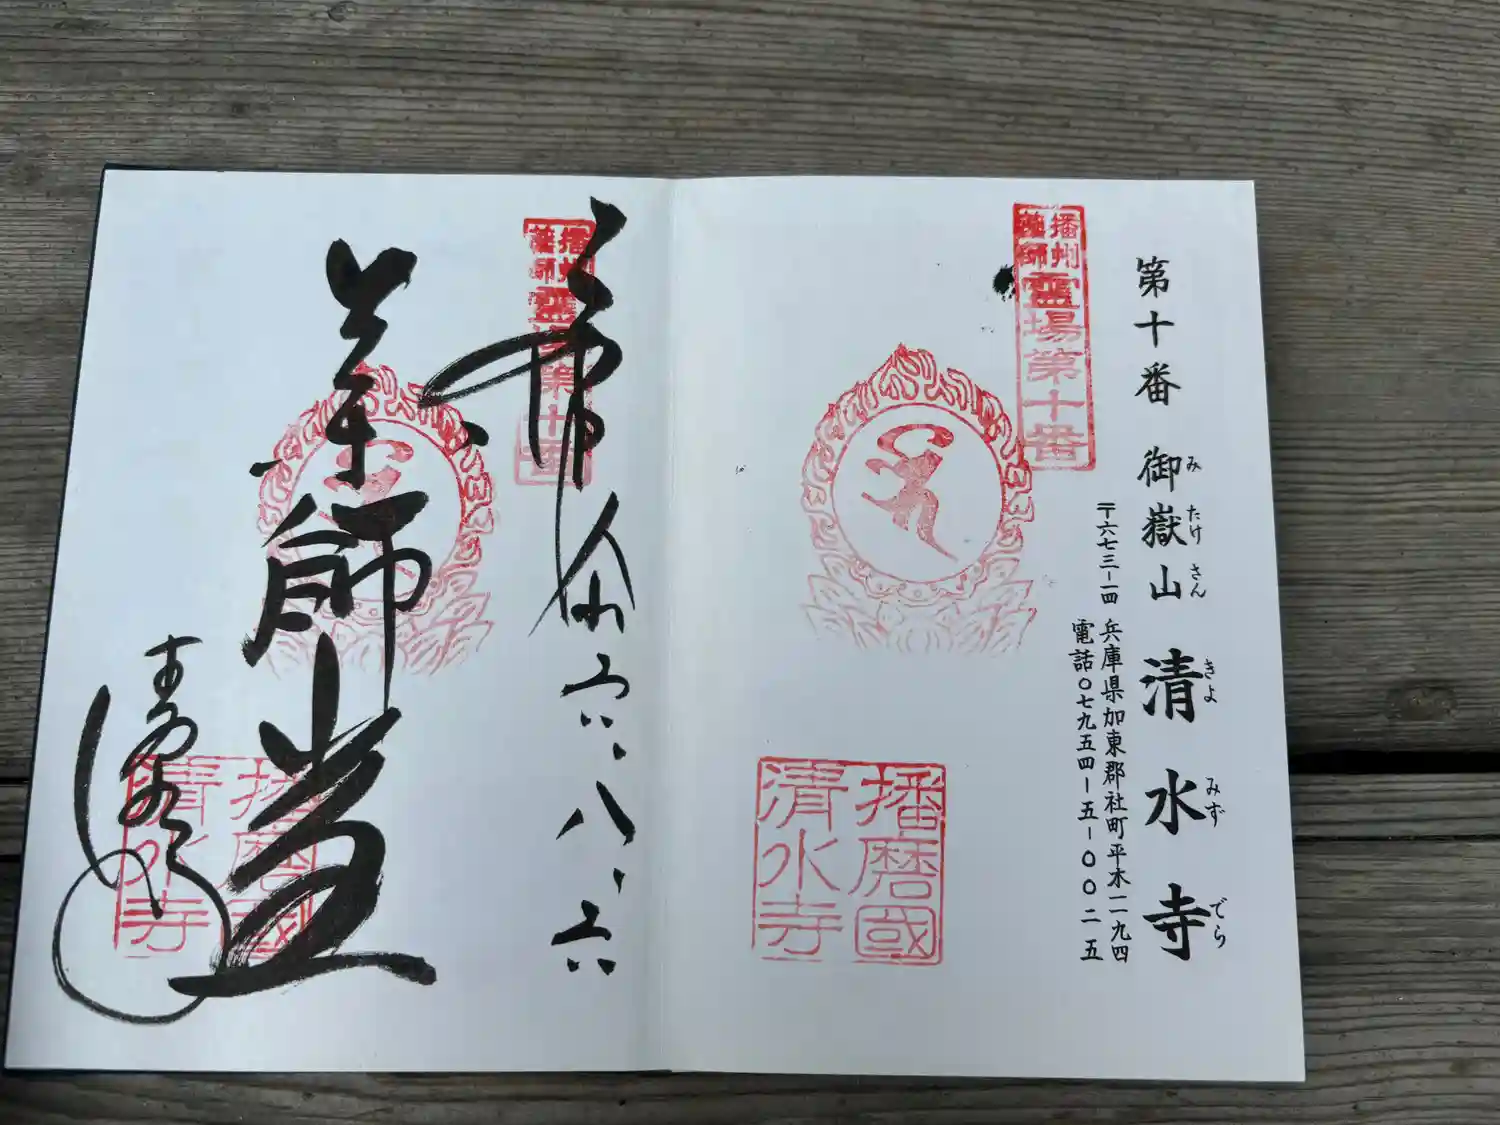 第十番 御嶽山 清水寺
みたけさん きよみずでら
〒六七三-一四 兵庫県加東郡社町平木一一九四
電話〇七九五四-五-〇〇二五
播州
薬師
霊場第十番
播磨國
清水寺
播州
薬師
霊場第十番
奉
六、八、六
薬師堂
清水寺
播磨國
清水寺